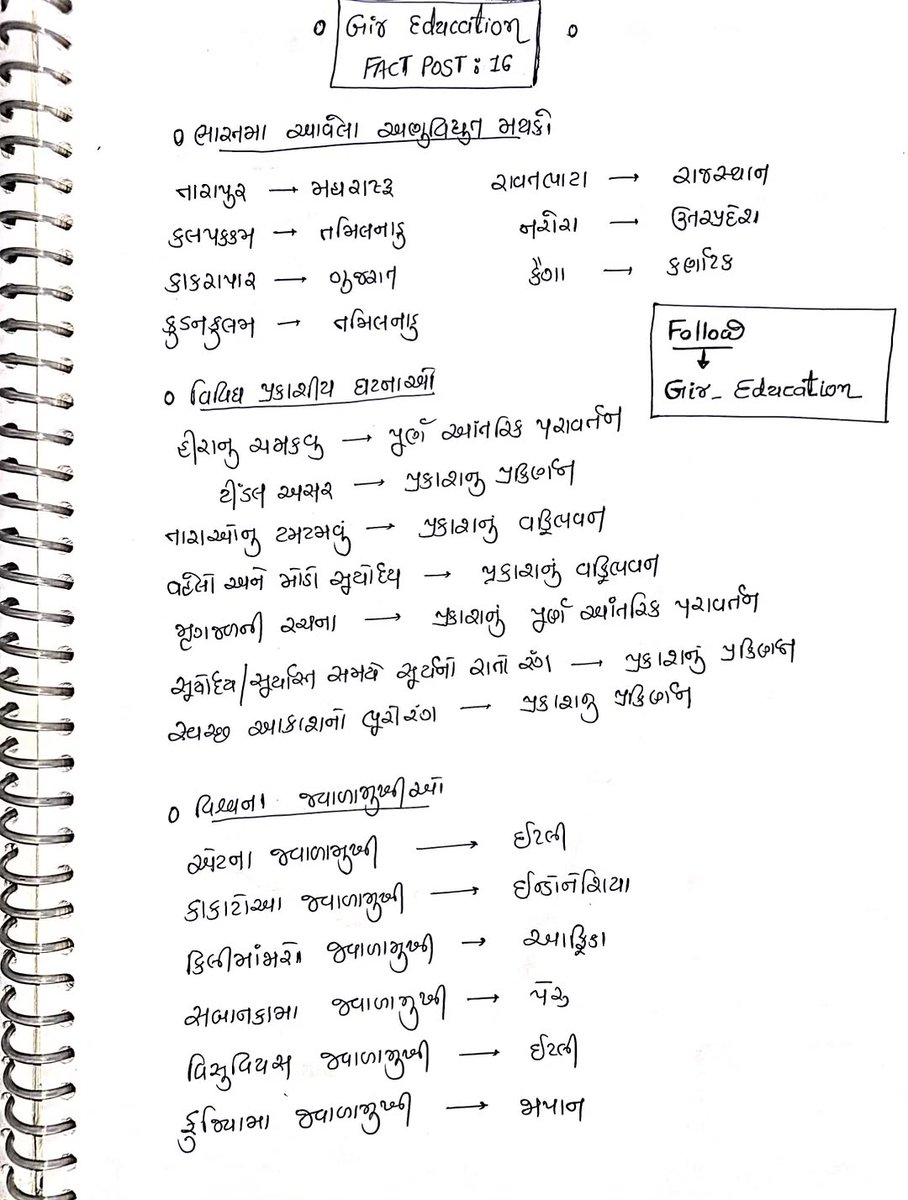 Gir Education
FACT POST : 16
ભારતમા આવેલા અણુવિદ્યુત મથકો
તારાપુર → મહારાષ્ટ્ર
રાવતભાટા → રાજસ્થાન
કલપક્કમ → તમિલનાડુ
નરોરા → ઉત્તરપ્રદેશ
કાકરાપાર → ગુજરાત
કૈગા → કર્ણાટક
કુડનકુલમ → તમિલનાડુ
Follow
↓
Gir_ Education
વિવિધ પ્રકાશીય ઘટનાઓ
હીરાનુ ચમકવુ → પૂર્ણ આંતરિક પરાવર્તન
ટીંડલ અસર → પ્રકાશનુ પ્રકિર્ણન
તારાઓનુ ટમટમવું → પ્રકાશનું વક્રિભવન
વહેલો અને મોડો સૂર્યોદય → પ્રકાશનું વક્રિભવન
મૃગજળની રચના → પ્રકાશનું પૂર્ણ આંતરિક પરાવર્તન
સૂર્યોદય/સૂર્યાસ્ત સમયે સૂર્યનો રાતો રંગ → પ્રકાશનું પ્રકિર્ણન
સ્વચ્છ આકાશનો ભૂરો રંગ → પ્રકાશનુ પ્રકિર્ણન
વિશ્વના જ્વાળામુખીઓ
એટના જ્વાળામુખી → ઈટલી
કાકાટોઆ જ્વાળામુખી → ઈન્ડોનેશિયા
કિલીમાંજરો જ્વાળામુખી → આફ્રિકા
સબાનકામા જ્વાળામુખી → પેરુ
વિસુવિયસ જ્વાળામુખી → ઈટલી
ફુજિયામા જ્વાળામુખી → જાપાન